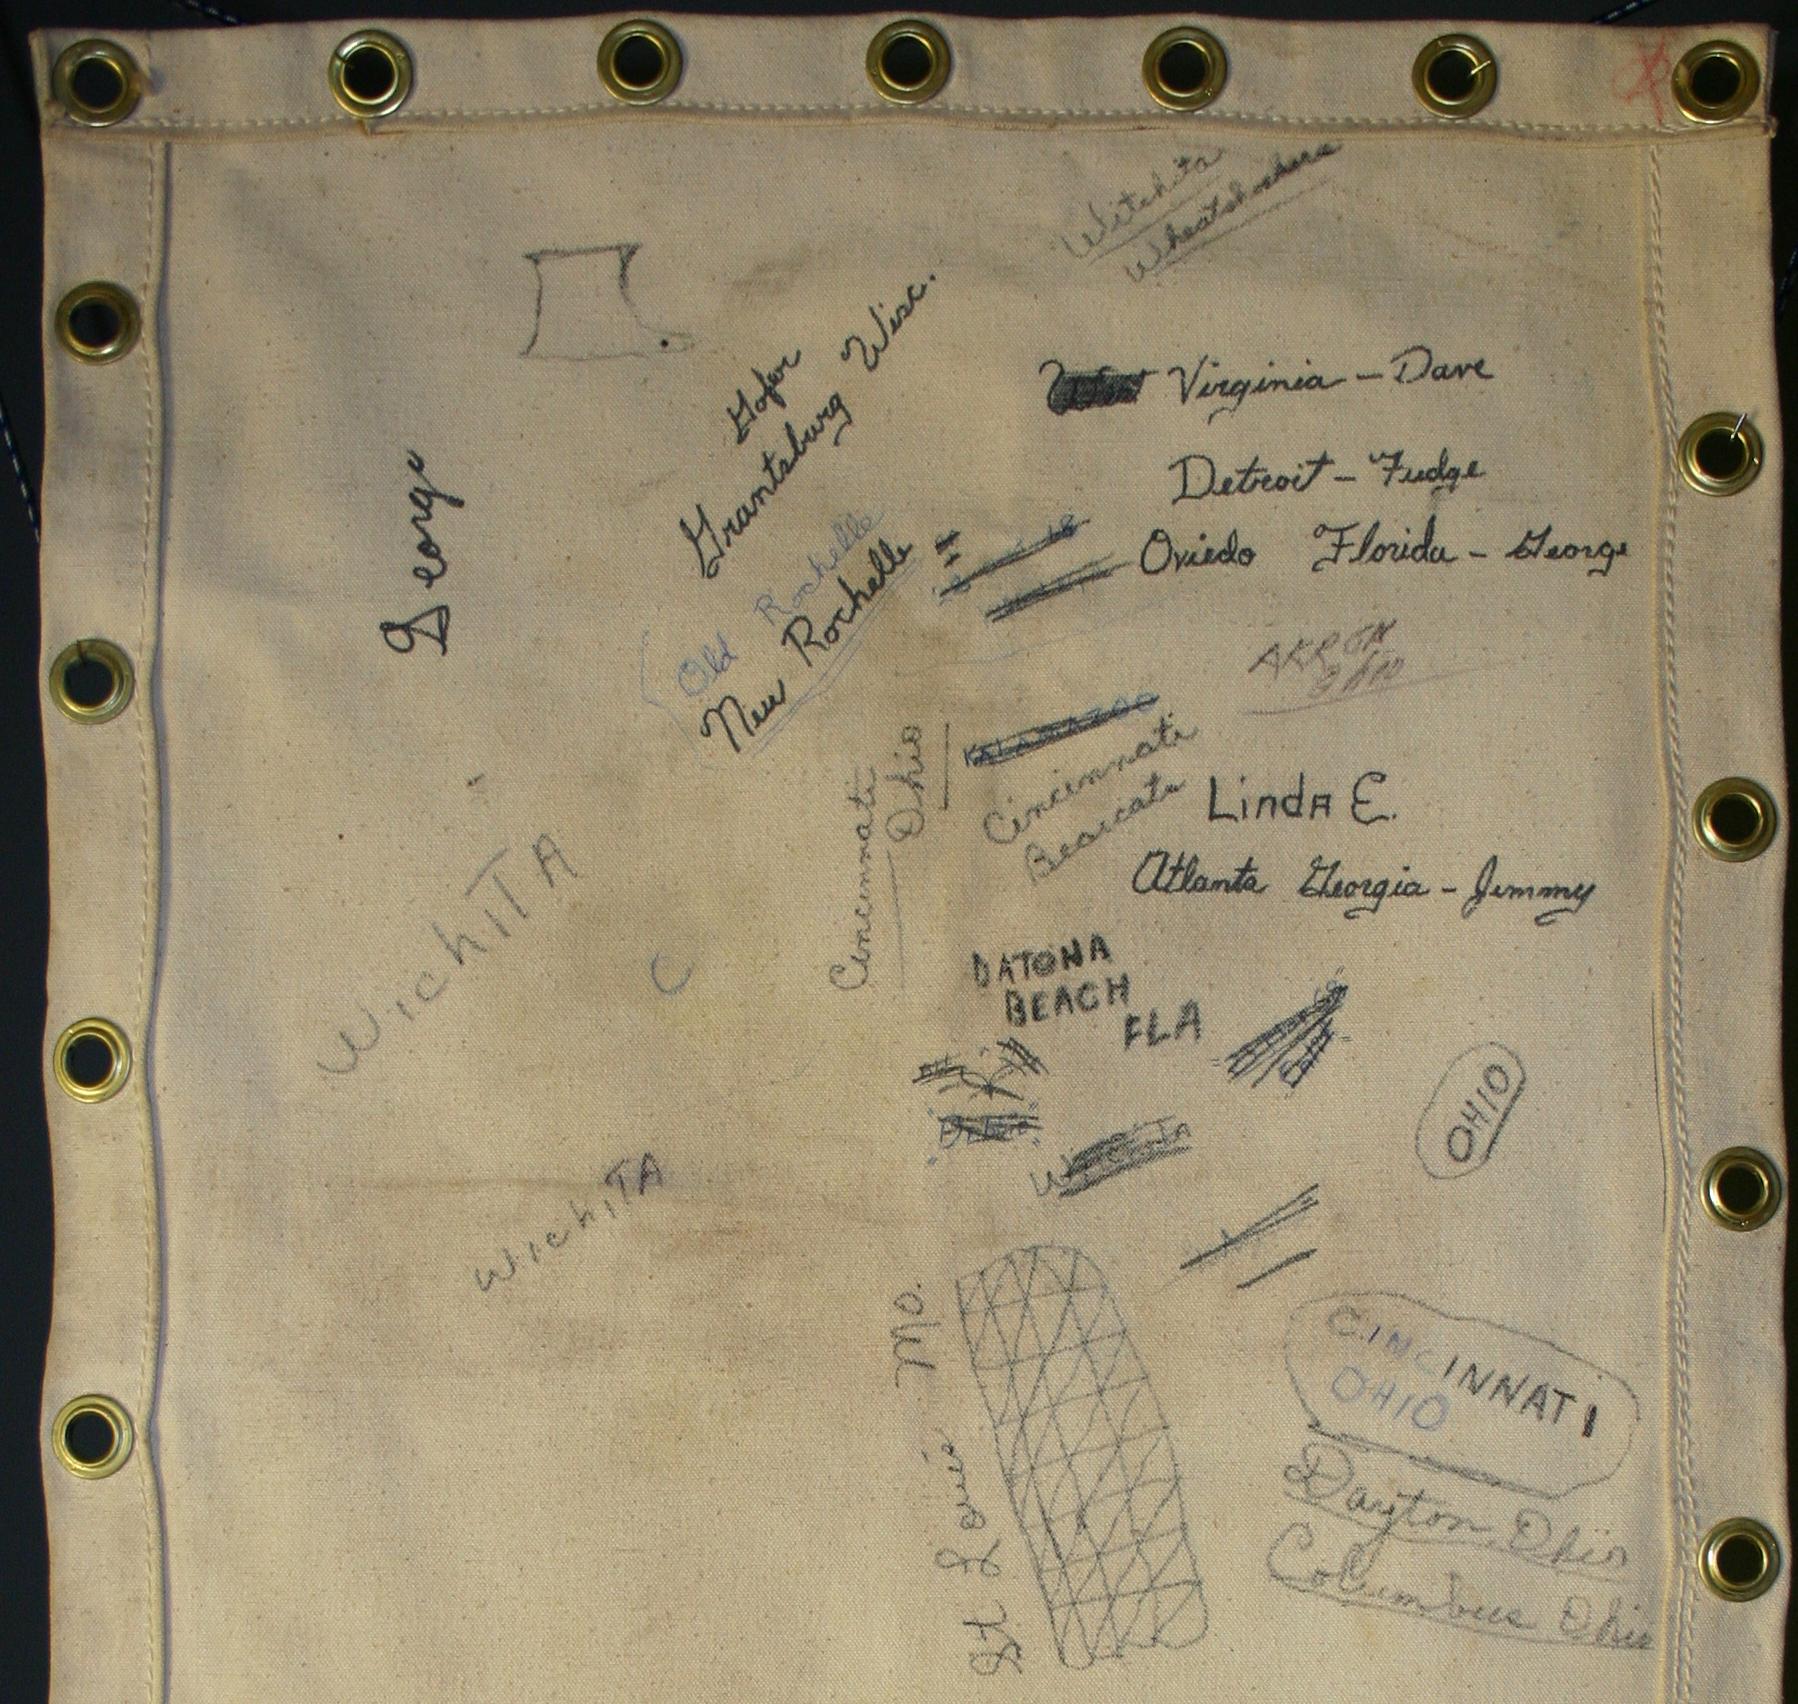 Witchita
Wheatshockers
Gofer
Grantsburg Wisc.
Virginia - Dave
George
Detroit - Fudge
Old Rochelle
New Rochelle
Oviedo Florida - George
AKRON
OHIO
KALAMAZOO
Cincinnati
Ohio
Cincinnati
Bearcats
Linda E.
Atlanta Georgia - Jimmy
WichiTA
C
DATONA
BEACH
FLA
OHIO
WichiTA
Wichita
St Louis Mo.
CINCINNATI
OHIO
Dayton, Ohio
Columbus Ohio